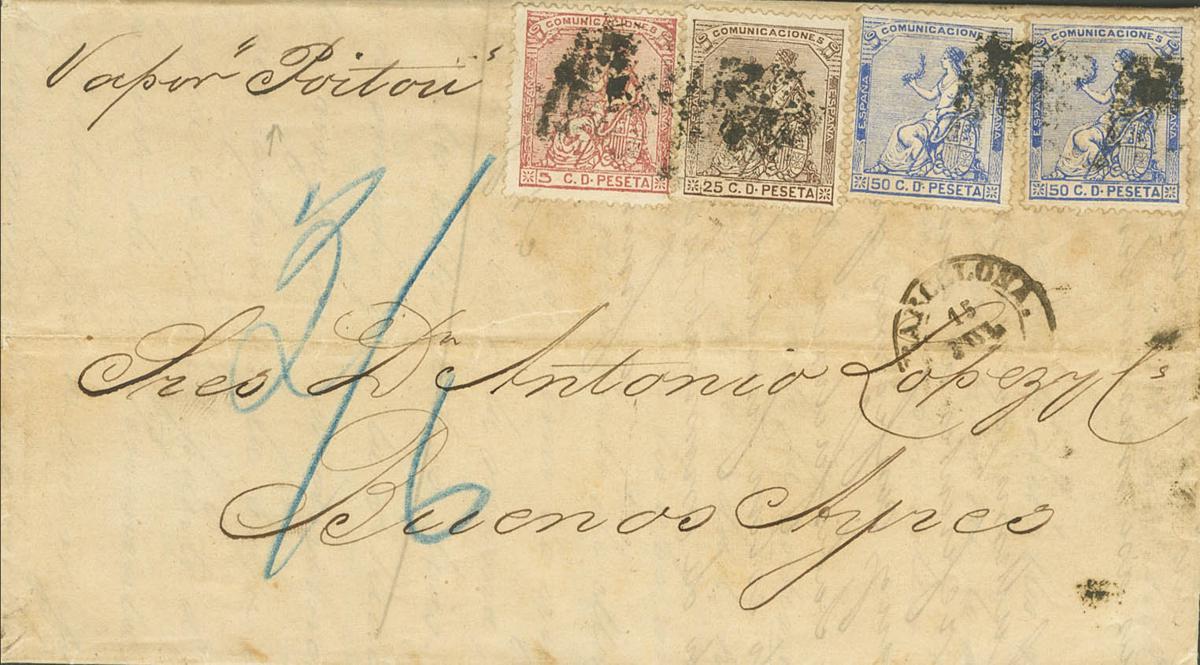 Vapor "Poitou"
COMUNICACIONES
ESPAÑA
5 C. D. PESETA
COMUNICACIONES
ESPAÑA
25 C. D. PESETA
COMUNICACIONES
ESPAÑA ESPAÑA
50 C. D. PESETA
COMUNICACIONES
ESPAÑA ESPAÑA
50 C. D. PESETA
BARCELONA.
15
JUL
Sres Dn Antonio Lopez y Cs
Buenos Ayres